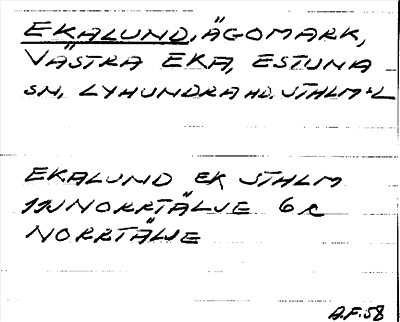 EKALUND, ÄGOMARK,
VÄSTRA EKA, ESTUNA
SN, LYHUNDRA HD, STHLMS L
EKALUND EK STHLM
11J NORRTÄLJE 6 c
NORRTÄLJE
A.F. 58